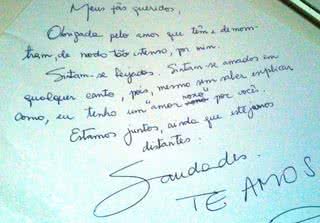 Meus fãs queridos,
Obrigada pelo amor que têm e demons
tram, de modo tão intenso, por mim.
Sintam-se beijados. Sintam-se amados em
qualquer canto, pois, mesmo sem saber explicar
como, eu tenho um "amor roxo" por você.
Estamos juntos, ainda que estejamos
distantes.
Saudades.
TE AMOS